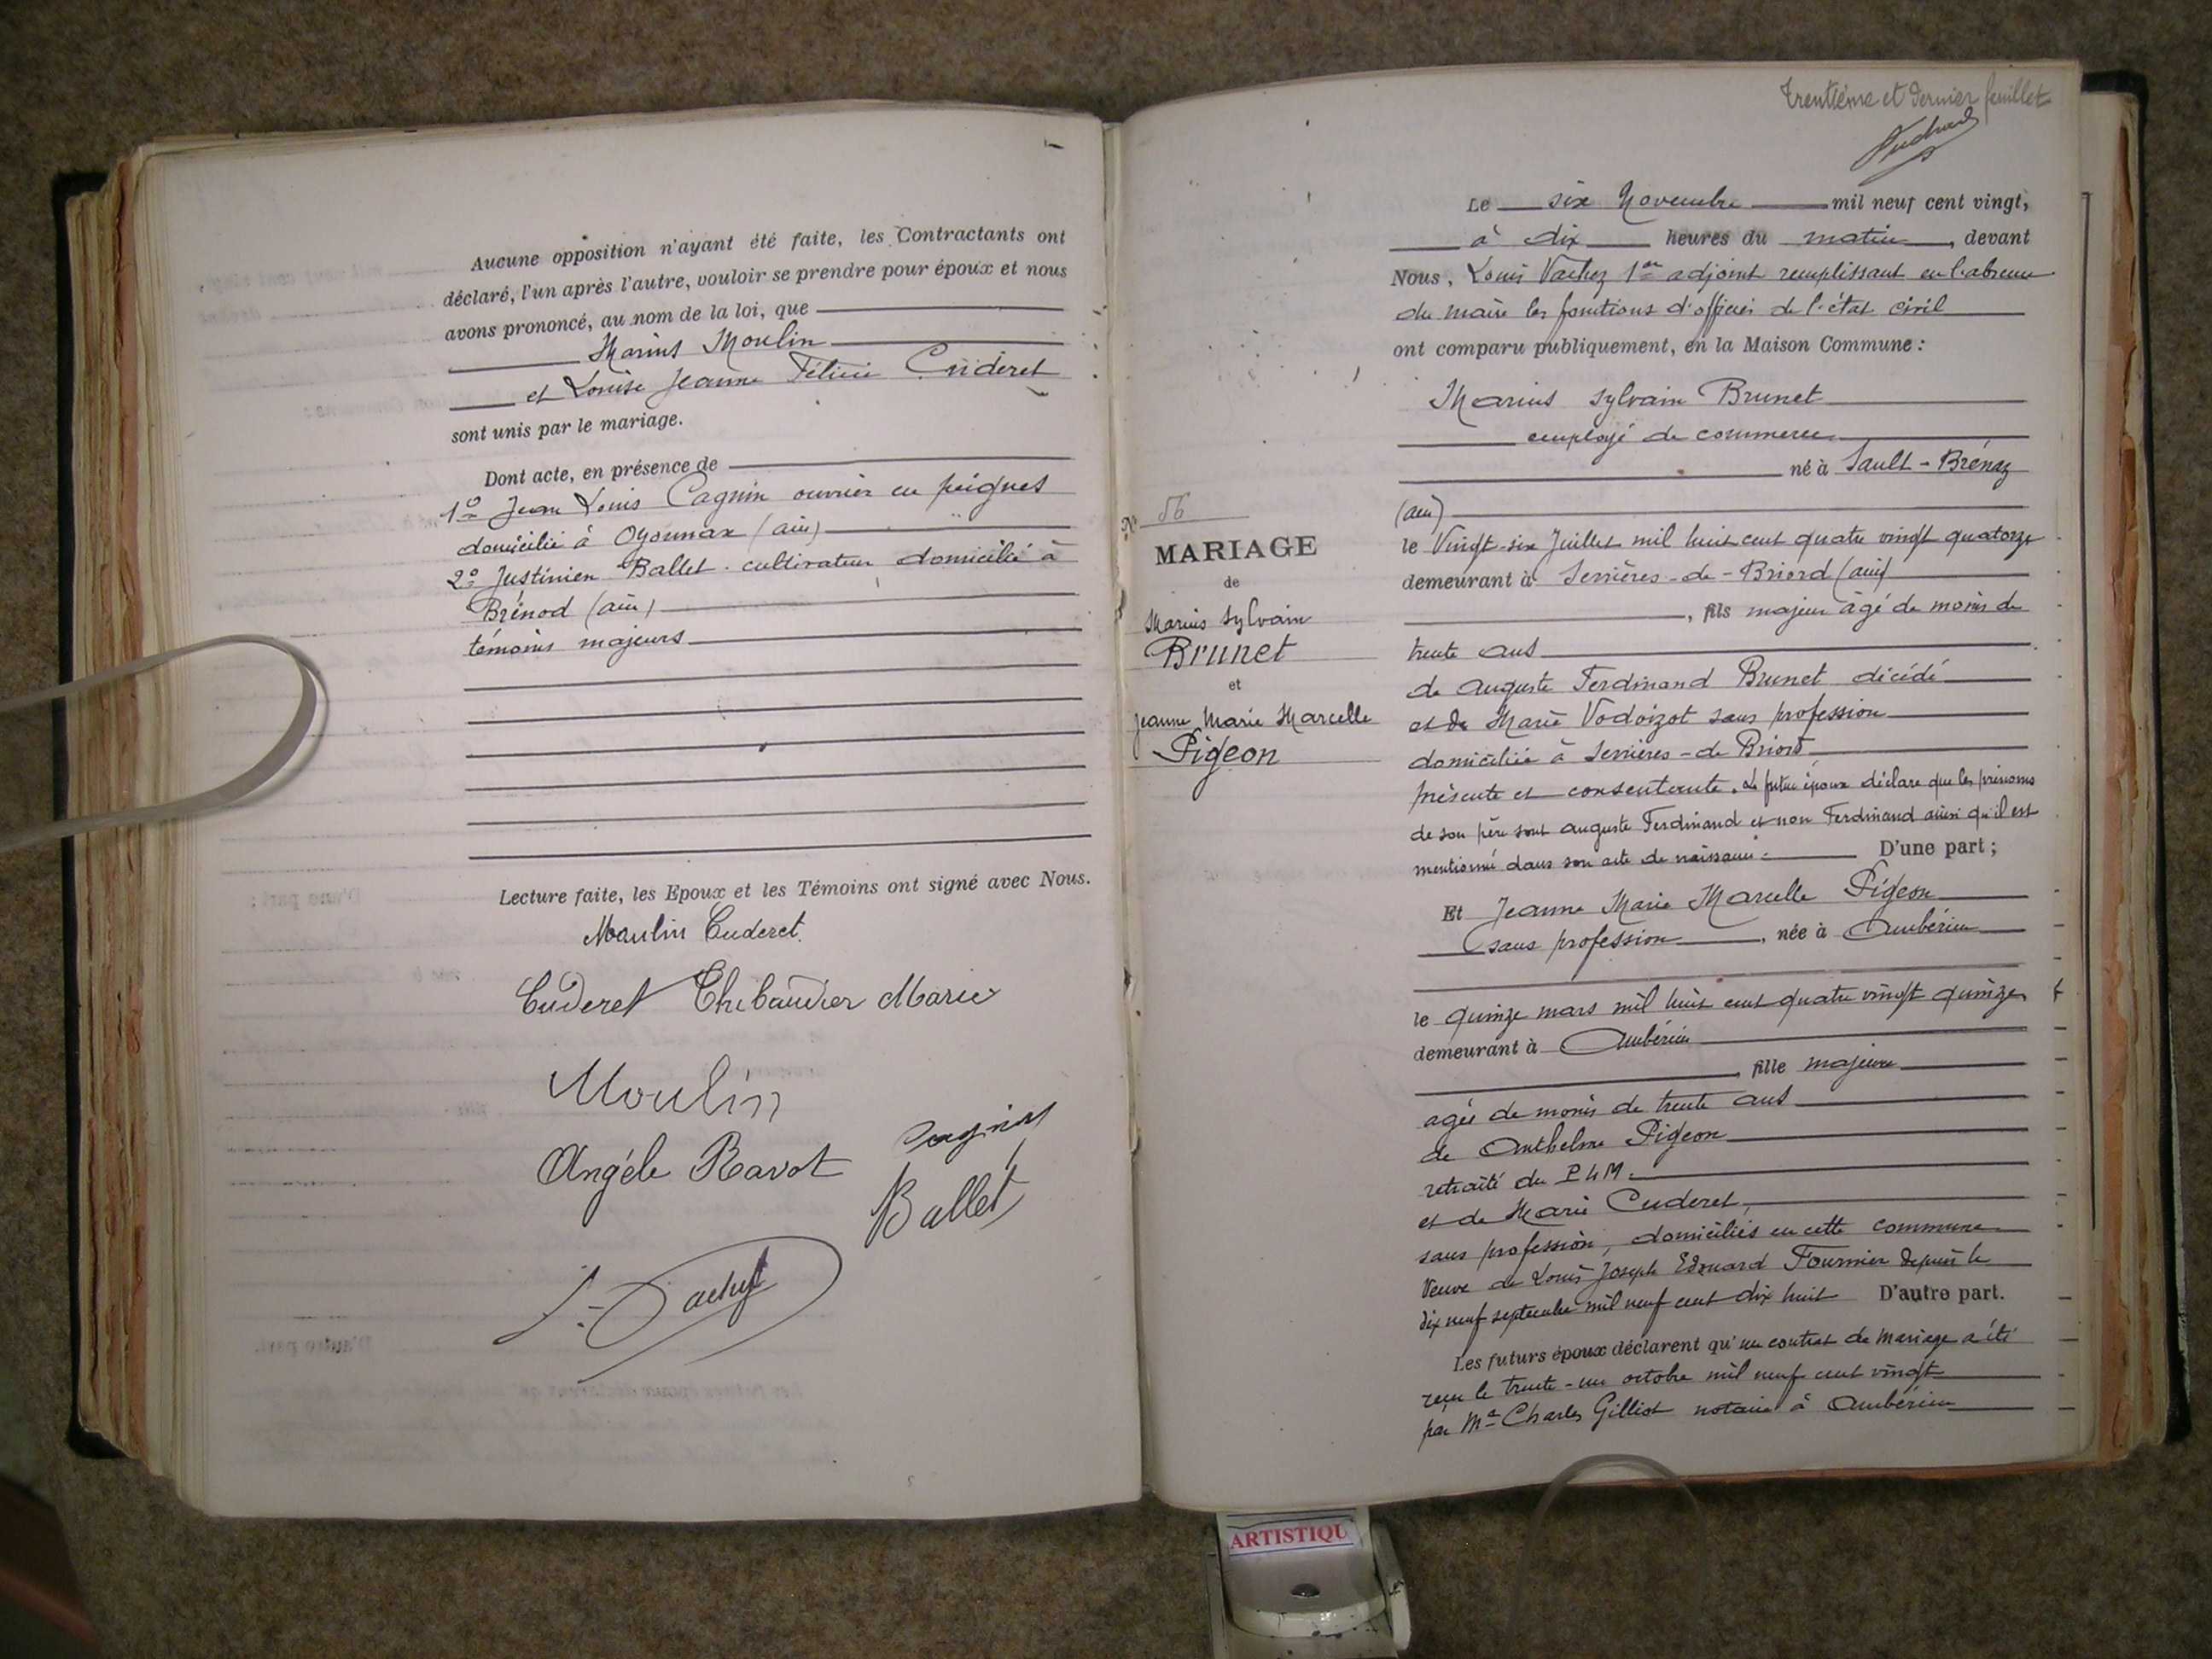 Aucune opposition n'ayant été faite, les Contractants ont
déclaré, l'un après l'autre, vouloir se prendre pour époux et nous
avons prononcé, au nom de la loi, que
Marius Moulin
et Louise Jeanne Félicie Cuderet
sont unis par le mariage.
Dont acte, en présence de
1º Jean Louis Cagnin ouvrier en peignes
domicilié à Oyonnax (ain)
2º Justinien Ballet cultivateur domicilié à
Brénod (ain)
témoins majeurs
Lecture faite, les Epoux et les Témoins ont signé avec Nous.
Moulin Cuderet
Cuderet Thibaudier Marie
Moulin
Cagnin
Angèle Ravot
Ballet
trentième et dernier feuillet
Le six Novembre mil neuf cent vingt,
à dix heures du matin, devant
Nous, Louis Vachez 1er adjoint remplissant en l'absence
du maire les fonctions d'officier de l'état civil
ont comparu publiquement, en la Maison Commune :
Marius Sylvain Brunet
employé de commerce
né à Sault-Brénaz
(ain)
le Vingt-six Juillet mil huit cent quatre vingt quatorze
demeurant à Serrières-de-Briord (ain)
, fils majeur âgé de moins de
trente ans
de Auguste Ferdinand Brunet décédé
et de Marie Vodoizot sans profession
domiciliée à Serrières-de Briord
présente et consentante. Le futur époux déclare que les prénoms
de son père sont Auguste Ferdinand et non Ferdinand ainsi qu'il est
mentionné dans son acte de naissance. D'une part ;
Et Jeanne Marie Marcelle Pigeon
sans profession, née à Ambérieu
le quinze mars mil huit cent quatre vingt quinze
demeurant à Ambérieu
, fille majeure
agée de moins de trente ans
de Anthelme Pigeon
retraité du PLM.
et de Marie Cuderet,
sans profession, domiciliés en cette commune
Veuve de Louis Joseph Edouard Fournier depuis le
dix neuf septembre mil neuf cent dix huit D'autre part.
Les futurs époux déclarent qu'un contrat de mariage a été
reçu le trente-un octobre mil neuf cent vingt
par Me Charles Gilliot notaire à Ambérieu
Nº 56
MARIAGE
de
Marius Sylvain
Brunet
et
Jeanne Marie Marcelle
Pigeon
ARTISTIQU